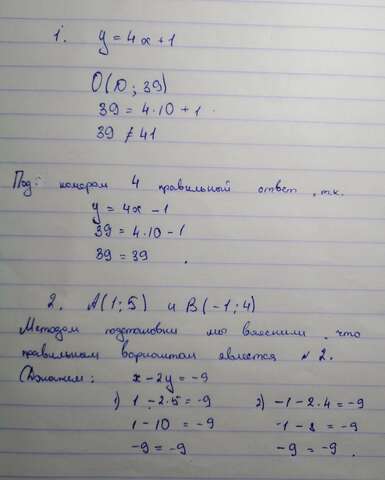 1. y = 4x + 1
O(10; 39)
39 = 4·10 + 1
39 ≠ 41
Под номером 4 правильный ответ, т.к.
y = 4x - 1
39 = 4·10 - 1
39 = 39.
2. A(1;5) и B(-1;4)
Методом подстановки мы выяснили, что
правильным вариантом является №2.
Докажем: x - 2y = -9
1) 1 - 2·5 = -9 2) -1 - 2·4 = -9
1 - 10 = -9 -1 - 8 = -9
-9 = -9 -9 = -9.